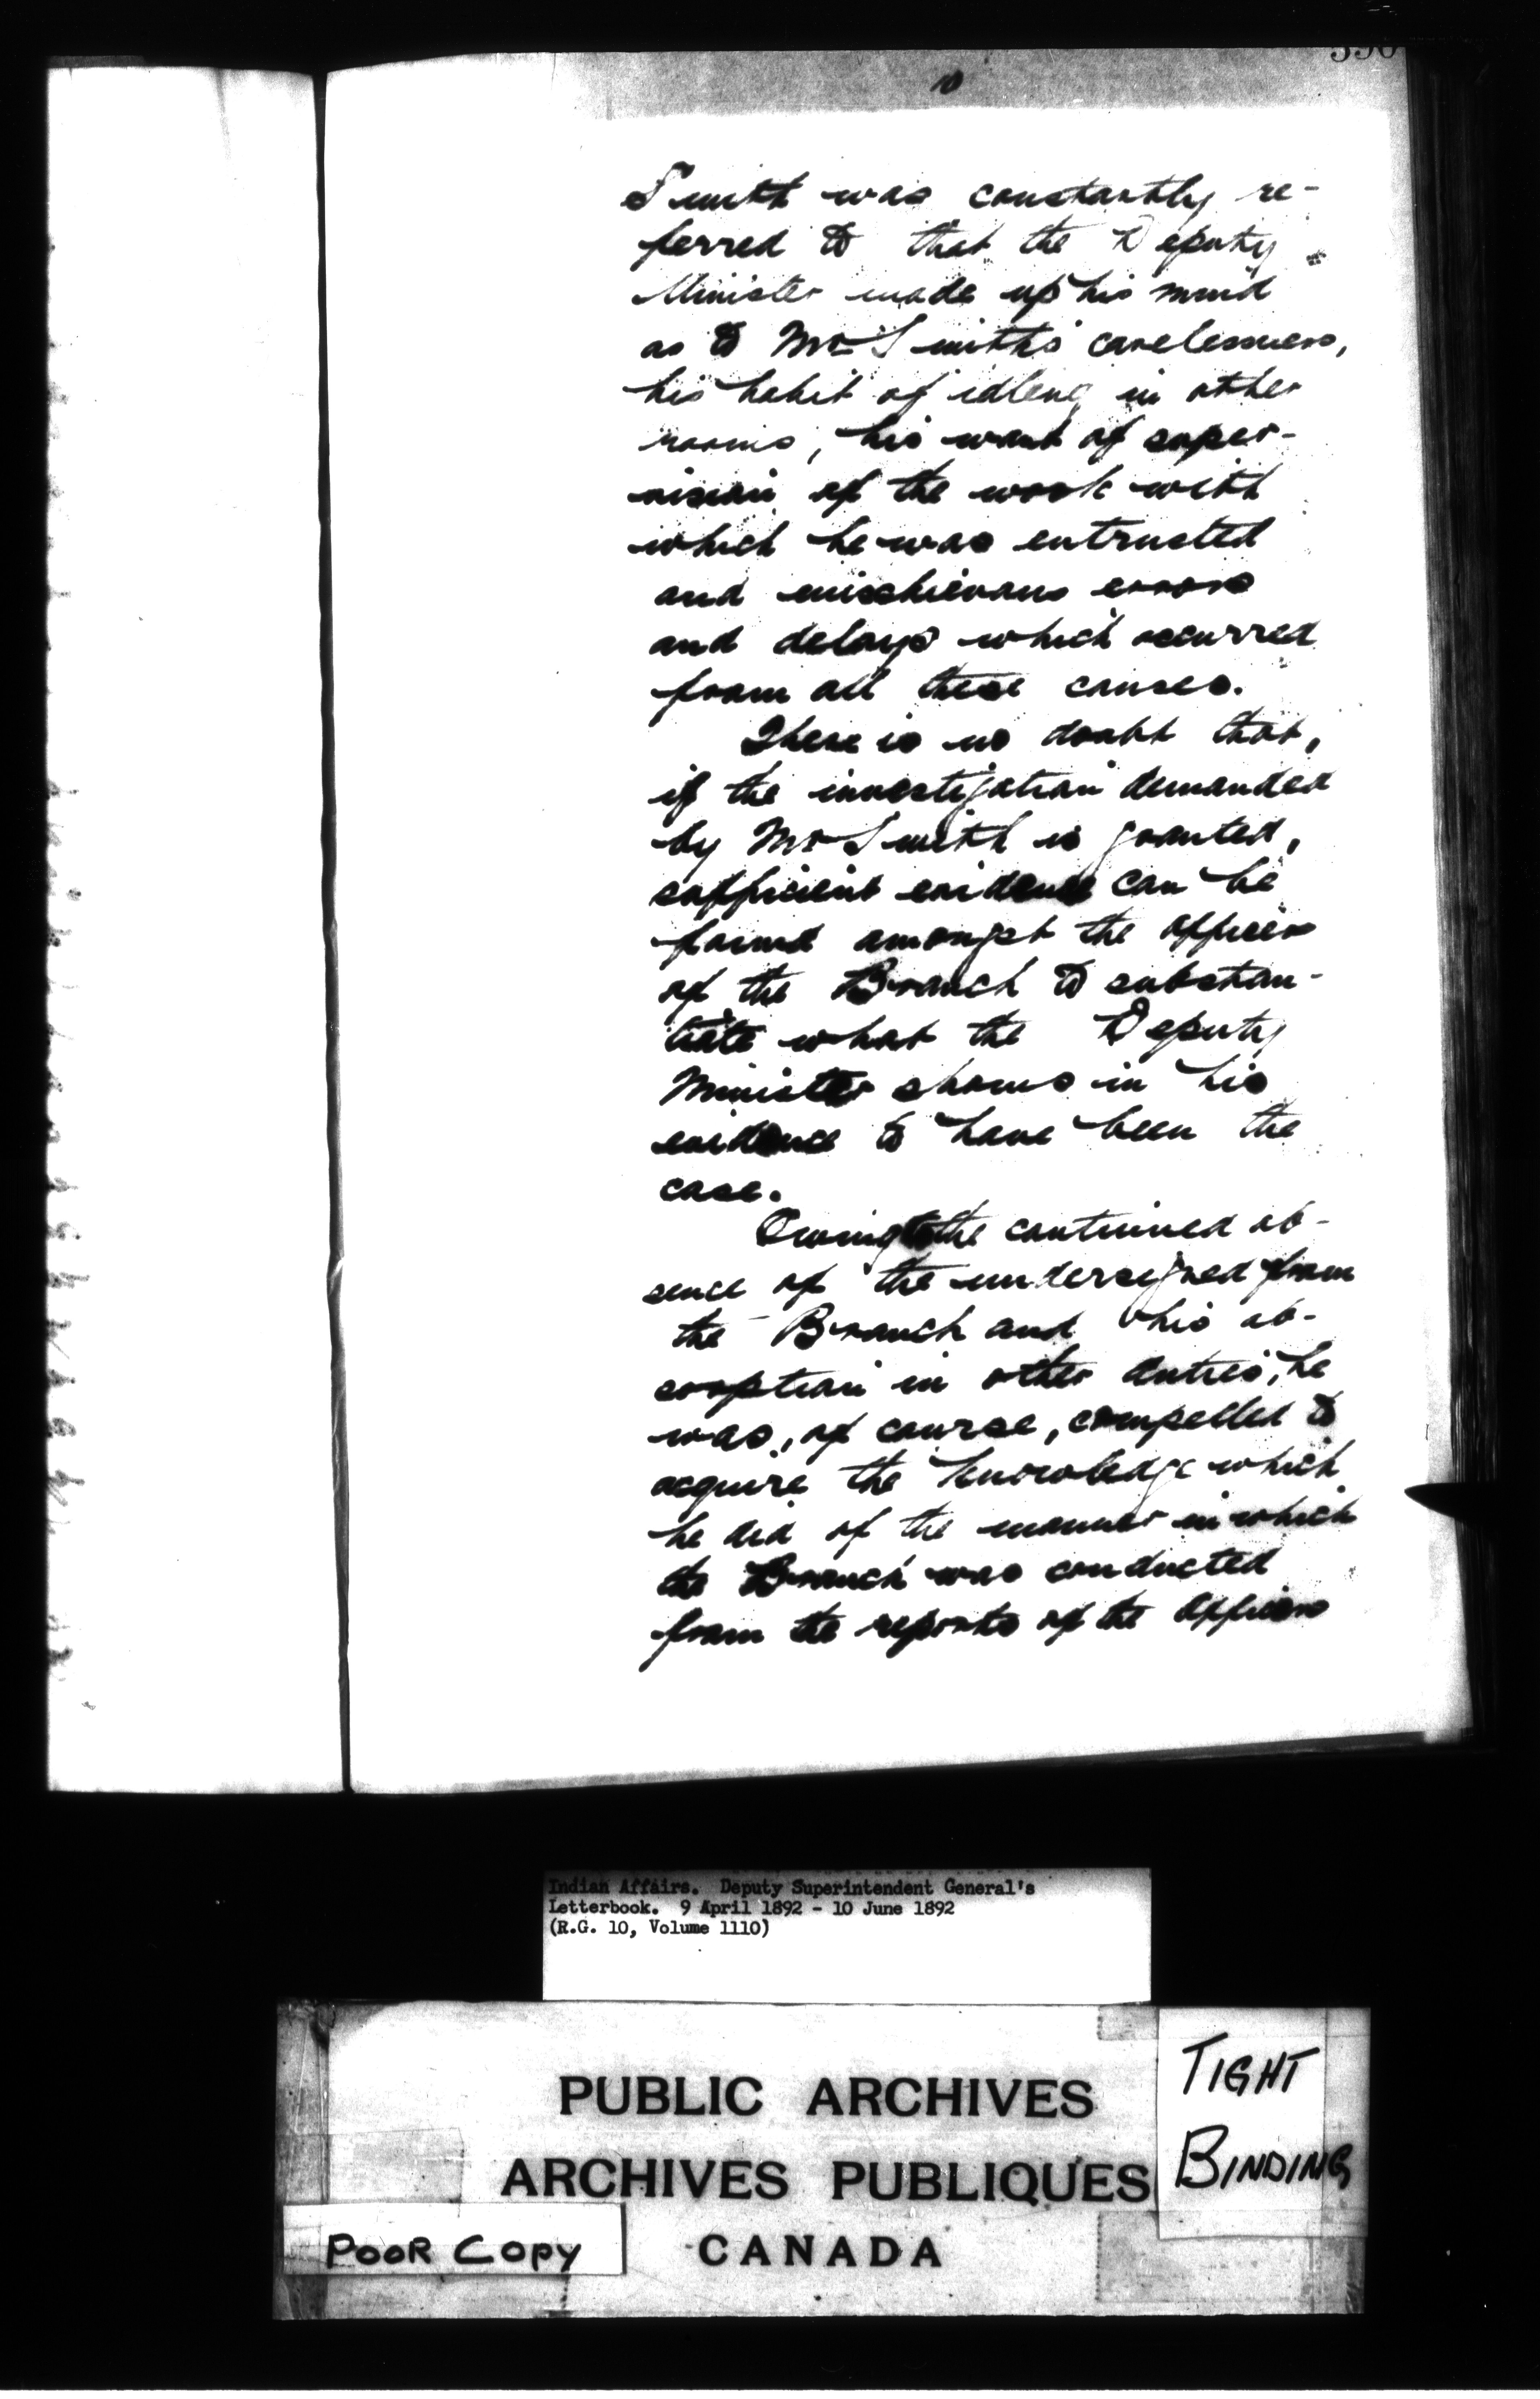 10
Smith was constantly re-
ferred to that the Deputy
Minister made up his mind
as to Mr Smith's carelessness,
his habit of idling in other
rooms, his want of super-
vision of the work with
which he was entrusted
and mischievous errors
and delays which occurred
from all these causes.
There is no doubt that,
if the investigation demanded
by Mr Smith is granted,
sufficient evidence can be
found amongst the officers
of the Branch to substan-
tiate what the Deputy
Minister shows in his
evidence to have been the
case.
Owing to the continued ab-
sence of the undersigned from
the Branch and his ab-
sorption in other duties, he
was, of course, compelled to
acquire the knowledge which
he did of the manner in which
the Branch was conducted
from the reports of the officers
Indian Affairs. Deputy Superintendent General's
Letterbook. 9 April 1892 - 10 June 1892
(R.G. 10, Volume 1110)
PUBLIC ARCHIVES
ARCHIVES PUBLIQUES
CANADA
TIGHT
BINDING
POOR COPY